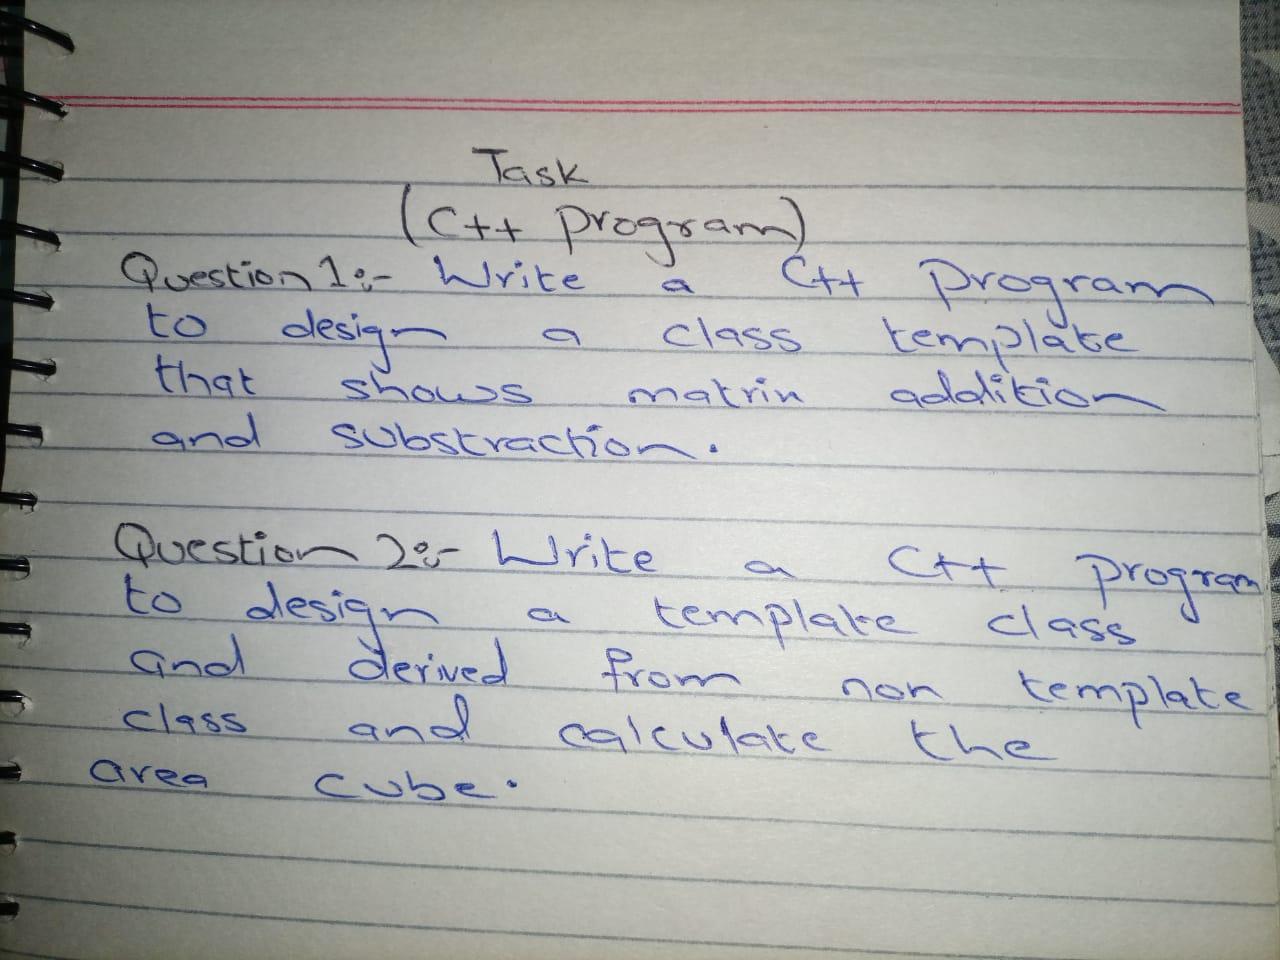 Task
(C++ program)
Question 1:- Write a C++ program
to design a class template
that shows matrix addition
and substraction.
Question 2:- Write a C++ program
to design a template class
and derived from non template
class and calculate the
area cube.